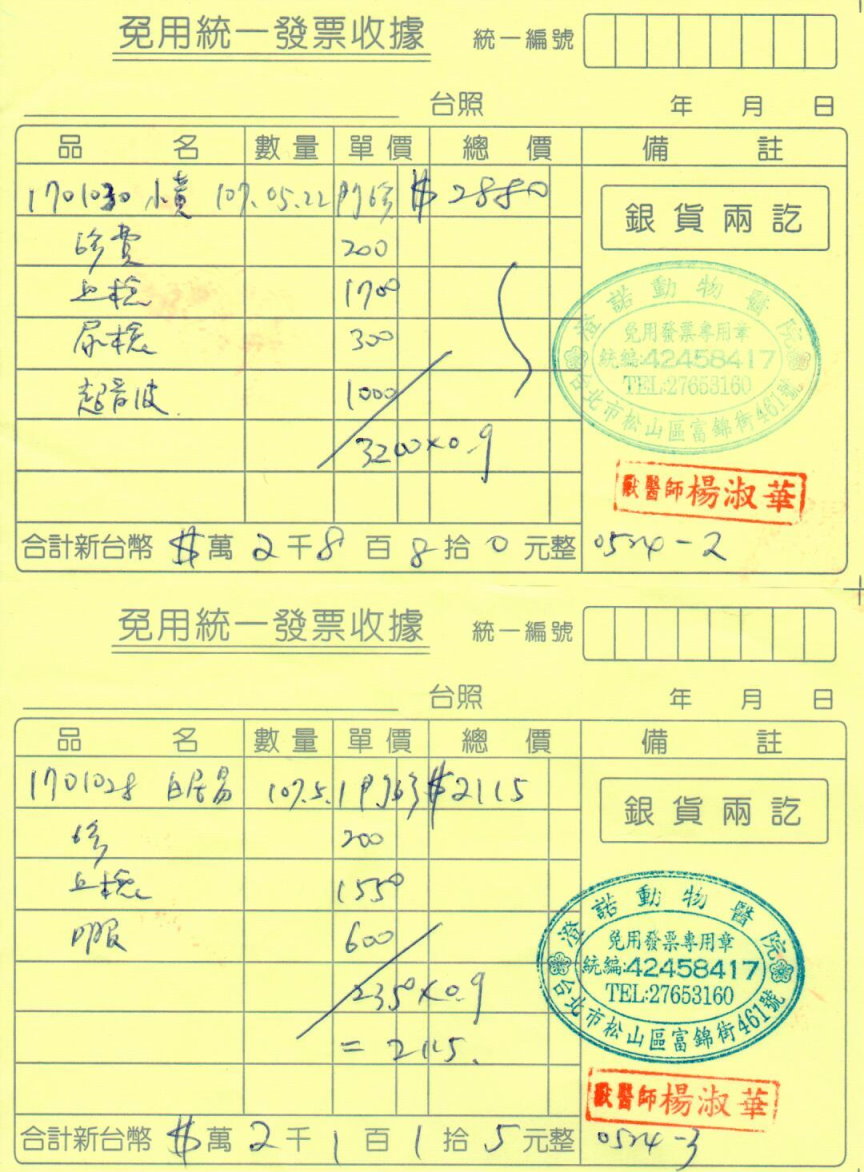 免用統一發票收據 統一編號
台照 年 月 日
品名 數量 單價 總價 備註
1701030 小黃 107.05.22 門診 $2880
銀貨兩訖
診費 200
血檢 1700
尿檢 300
超音波 1000
3200×0.9
澄諾動物醫院
免用發票專用章
統編:42458417
TEL:27653160
台北市松山區富錦街461號
獸醫師楊淑華
合計新台幣 $萬2千8百8拾0元整 0524-2
免用統一發票收據 統一編號
台照 年 月 日
品名 數量 單價 總價 備註
1701028 白居易 107.5.1 門診 $2115
銀貨兩訖
診 200
血檢 1550
口服 600
2350×0.9
= 2115.
澄諾動物醫院
免用發票專用章
統編:42458417
TEL:27653160
台北市松山區富錦街461號
獸醫師楊淑華
合計新台幣 $萬2千1百1拾5元整 0524-3